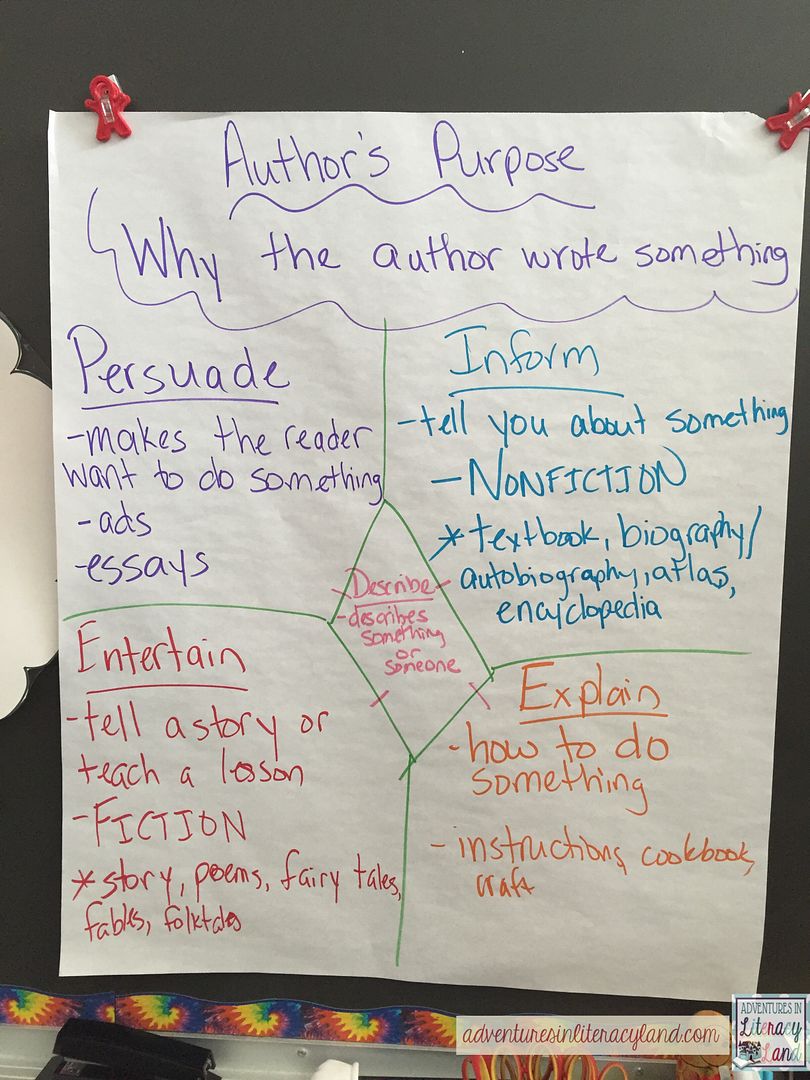 Author's Purpose
Why the author wrote something
Persuade
-makes the reader
want to do something
-ads
-essays
Inform
-tell you about something
-NONFICTION
*textbook, biography/
autobiography, atlas,
encyclopedia
Describe
-describes
something
or
someone
Entertain
-tell a story or
teach a lesson
-FICTION
*story, poems, fairy tales,
fables, folktales
Explain
-how to do
something
-instructions, cookbook,
craft
adventuresinliteracyland.com
ADVENTURES IN
Literacy
Land